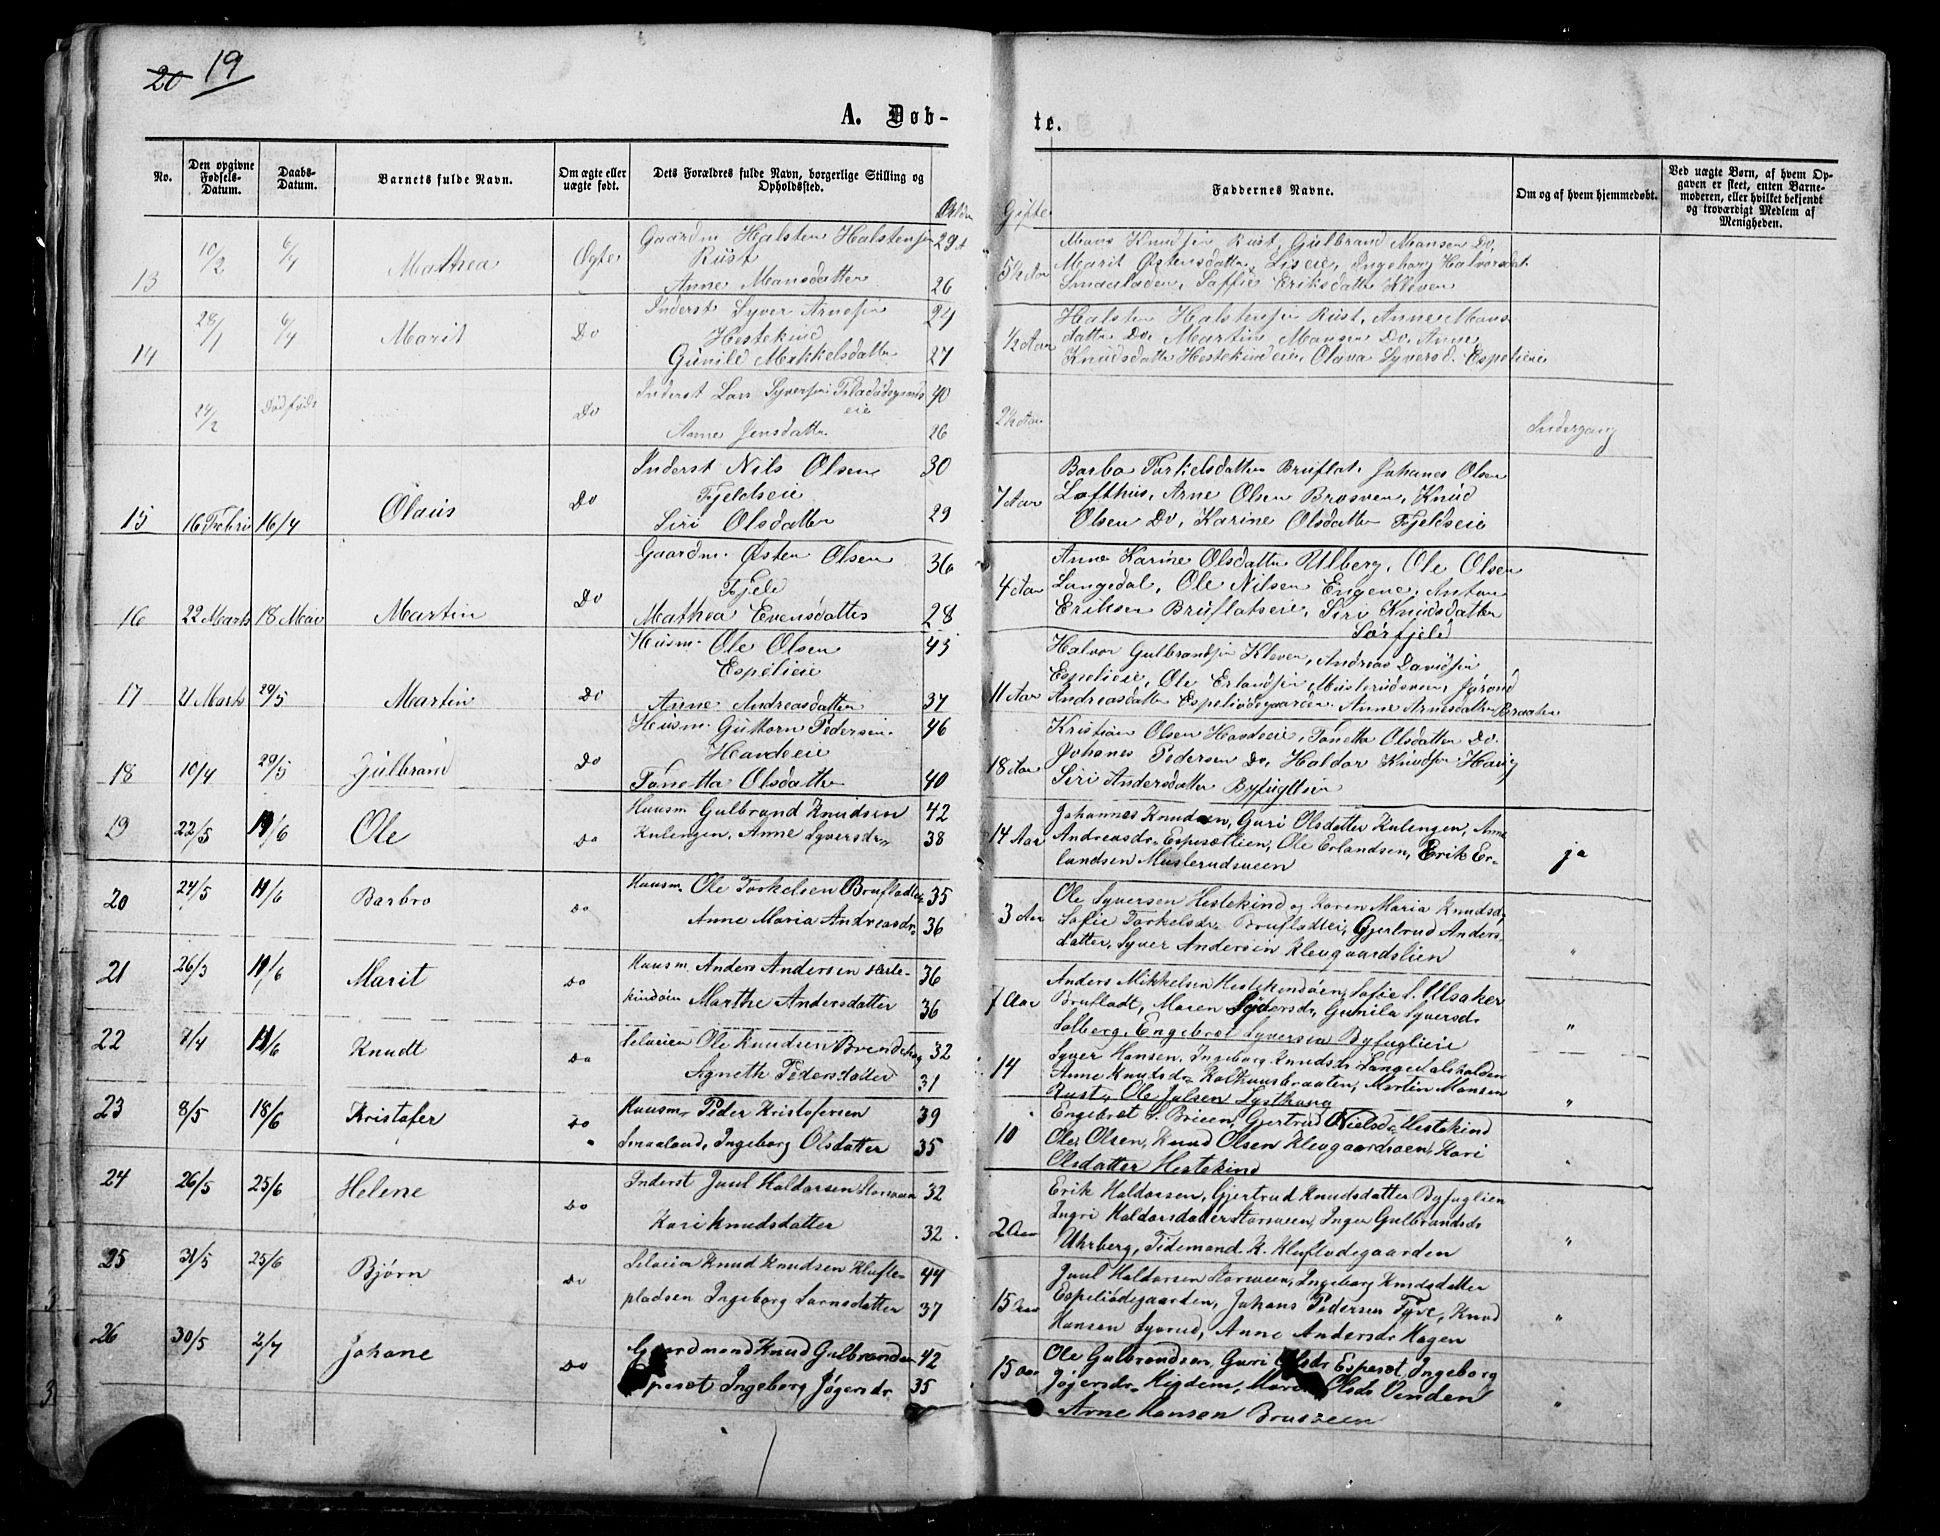 20 19
A. Døb-
te.
No.
Den opgivne Fødsels-Datum.
Daabs-Datum.
Barnets fulde Navn.
Om ægte eller uægte født.
Dets Forældres fulde Navn, borgerlige Stilling og Opholdssted.
Alder
Gifte
Faddernes Navne.
Om og af hvem hjemmedøbt.
Ved uægte Børn, af hvem Opgaven er skeet, enten Barnemoderen, eller hvilket bekjendt og troværdigt Medlem af Menigheden.
13 10/2 6/4 Mathea Ægte Gaardm Halsten Halstensen 29
Rust
Anne Mansdatter 26
5½ Aar Mans Knudsen Rust, Gulbrand Mansen Do,
Marit Østensdatter Liseie, Ingeborg Halvorsdat
Smaaladen, Saffie Eriksdatter Kleven
14 28/1 6/4 Marit Do Inderst Syver Arnesen 24
Hestekind
Gunild Mikkelsdatter 27
½ Aar Halsten Halstensen Rust, Anne Mans
datter Do, Martin Mansen Do, Anne
Knudsdatter Hestekindeie, Olava Syversd. Espelieie
24/2 Dødfødt Do Inderst Lars Syversen 40
eie
Anne Jensdatter 26
2½ Aar
15 16 Febri 16/4 Olaus Do Inderst Nils Olsen 30
Fjeldseie
Siri Olsdatter 29
7 Aar Barbo Torkelsdatter Bruflat, Johanes Olsen
Lofthus, Arne Olsen Brosven, Knud
Olsen Do, Karine Olsdatter Fjeldseie
16 22 Marts 18 Mai Martin Do Gaardm. Østen Olsen 36
Fjeld
Mathea Evensdatter 28
4 Aar Anne Karine Olsdatter Ulberg, Ole Olsen
Langedal, Ole Nilsen Engene, Anton
Eriksen Bruflatseie, Siri Knudsdatter
Sørfjeld
17 21 Marts 29/5 Martin Do Husm. Ole Olsen 45
Espelieie
Anne Andreasdatter 37
11 Aar Halvor Gulbrandsen Kleven, Andreas Davidsen
Espelieie, Ole Erlandsen Musterudsven, Jørand
Andreasdatter Espeliødegaarden, Anne Arnesdatter Braaten
18 10/4 29/5 Gulbrand Do Husm. Guttorn Pedersen 46
Havdeie
Tonetta Olsdatter 40
18 Aar Kristian Olsen Havdeie, Tonetta Olsdatter Do.
Johanes Pedersen Do, Haldor Knudsen Haug
Siri Andersdatter Byfuglien
19 22/5 19/6 Ole do Huusm. Gulbrand Knudsen 42
Kulengen, Anne Syversdr 38
14 Aar Johannes Knudsen, Guri Olsdatter Kulengen, Anne
Andreasdr Espesætlien, Ole Erlandsen, Erik Er-
landsen Musterudsveen ja
20 24/5 19/6 Barbro do Huusm. Ole Torkelsen Brufladtei 35
Anne Maria Andreasdr 36
3 Aar Ole Syversen Hestekind og Karen Maria Knudsd,
Sofie Torkelsdr Brufladtei, Gjertrud Anders
datter, Syver Andersen Klevgaardslien "
21 26/3 19/6 Marit do Huusm Anders Andersen Heste- 36
kindøen Marthe Andersdatter 36
7 Aar Anders Mikkelsen Hestekindøen, Sofie S. Ulsaker
Brufladt, Maren Syversdr, Gunild Syversd.
Solberg, Engebret Syversen Byfuglieie "
22 7/4 19/6 Knudt do Seloeien Ole Knudsen Brendehag 32
Agneth Pedersdatter 31
14 Syver Hansen, Ingeborg Knudsdr Langedalshalden
Anne Knutsdr Kolhuusbraaten, Martin Mansen
Rust, Ole Julsen Lysthaug "
23 8/5 18/6 Kristofer do Huusm Peder Kristofersen 39
Smaaland, Ingeborg Olsdatter 35
10 Engebret S. Brieen, Gjertrud Nielsdr Hestekind
Ole Olsen, Knud Olsen Klevgaardsøen, Kari
Olsdatter Hestekind "
24 26/5 25/6 Helene do Inderst Juul Haldorsen Storveen 32
Kari Knudsdatter 32
2 Aar Erik Haldorsen, Gjertrud Knudsdatter Byfuglien
Ingri Haldorsdatter Storsveen, Inger Gulbrandsd.
Uhrberg, Tidemand K. Kluftødegaarden "
25 31/5 25/6 Bjørn do Seloeier Knud Knudsen Klufte- 44
pladsen Ingeborg Larsdatter 37
15 Aar Juul Haldorsen Storsveen, Ingeborg Knudsdatter
Espeliødegaarden, Johans Pedersen Tyve, Knud
Hansen Lyvrud, Anne Andersdr Hagen "
26 30/5 2/7 Johane do Gaardmand Knud Gulbrandsen 42
Espeset Ingeborg Jøgersdr 35
15 Aar Ole Gulbrandsen, Guri Olsdr Espeset, Ingeborg
Jøgersdr Rigdem, Maren Olsdr Vinden
Arne Hansen Brusveen "